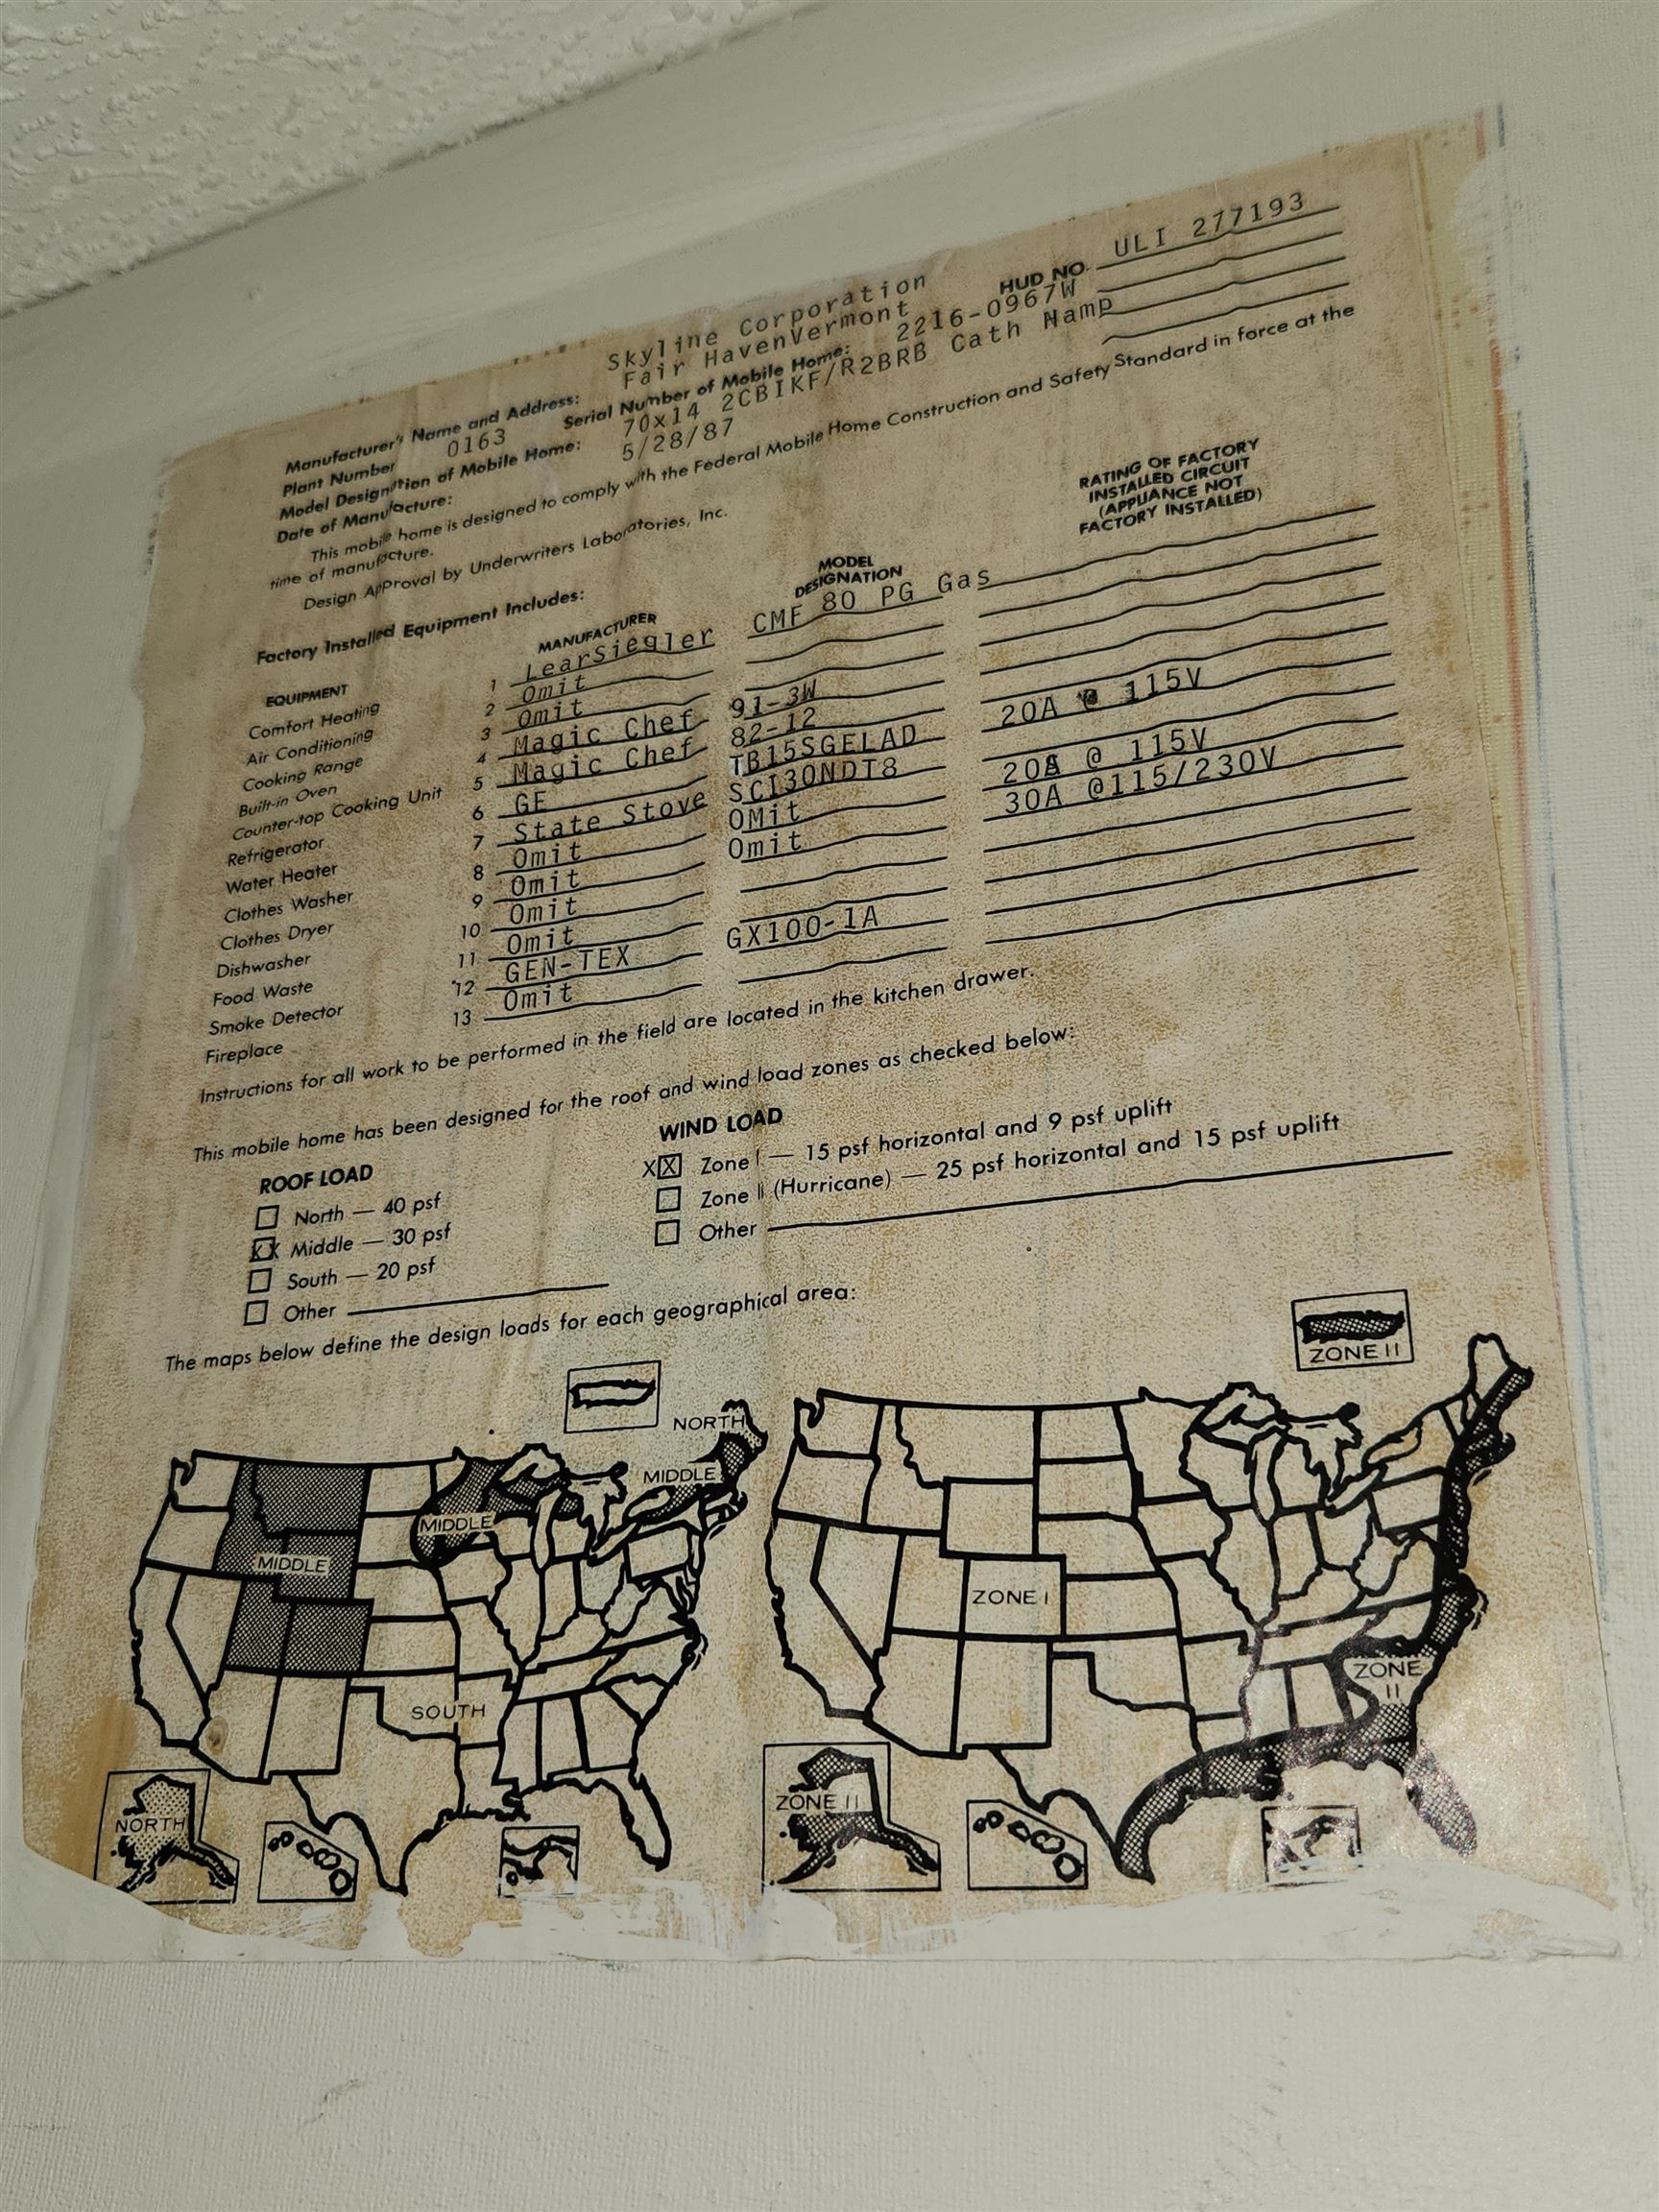 Skyline Corporation
Fair HavenVermont
HUD NO. ULI 277193
Manufacturer's Name and Address:
Plant Number 0163 Serial Number of Mobile Home: 2216-0967W
Model Designation of Mobile Home: 70x14 2CBIKF/R2BRB Cath Namp
Date of Manufacture: 5/28/87
This mobile home is designed to comply with the Federal Mobile Home Construction and Safety Standard in force at the
time of manufacture.
Design Approval by Underwriters Laboratories, Inc.
Factory Installed Equipment Includes:
RATING OF FACTORY
INSTALLED CIRCUIT
(APPLIANCE NOT
FACTORY INSTALLED)
EQUIPMENT MANUFACTURER MODEL
DESIGNATION
Comfort Heating 1 LearSiegler CMF 80 PG Gas
Air Conditioning 2 Omit
Cooking Range 3 Omit
Built-in Oven 4 Magic Chef 91-3W
Counter-top Cooking Unit 5 Magic Chef 82-12 20A @ 115V
Refrigerator 6 GE TB15SGELAD
Water Heater 7 State Stove SCI30NDT8 @ 115V
Clothes Washer 8 Omit OMit 30A @115/230V
Clothes Dryer 9 Omit Omit
Dishwasher 10 Omit
Food Waste 11 Omit
Smoke Detector 12 GEN-TEX GX100-1A
Fireplace 13 Omit
Instructions for all work to be performed in the field are located in the kitchen drawer.
This mobile home has been designed for the roof and wind load zones as checked below:
ROOF LOAD WIND LOAD
North — 40 psf XX Zone I — 15 psf horizontal and 9 psf uplift
XX Middle — 30 psf Zone II (Hurricane) — 25 psf horizontal and 15 psf uplift
South — 20 psf Other
Other
The maps below define the design loads for each geographical area:
ZONE II
NORTH
MIDDLE
MIDDLE
MIDDLE
ZONE I
SOUTH
ZONE
II
NORTH
ZONE II